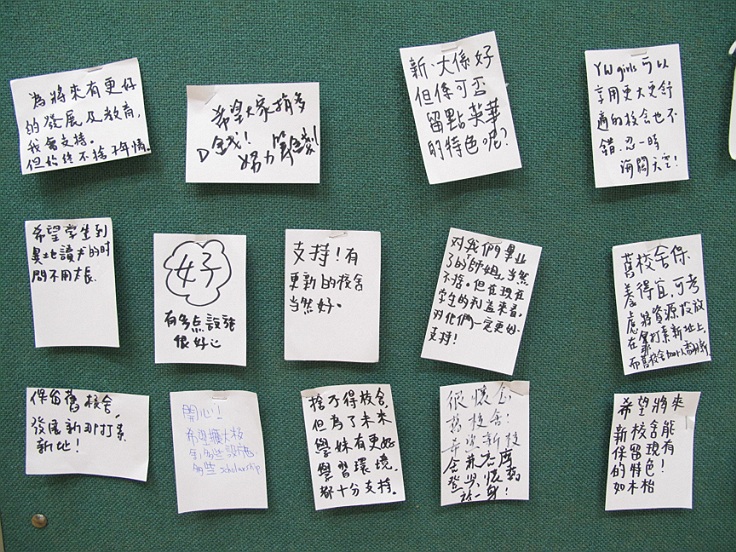 為將來有更好
的發展及教育，
我會支持。
但始終不捨得舊情。
希望大家捐多
D錢！
努力籌錢！
新、大係好
但係可否
留點英華
的特色呢？
YW girls 可以
享用更大更舒
適的校舍也不
錯，忍一時
海闊天空！
希望學生到
異地讀書的時
間不用太長
好
有多点設施
很好
支持！有
更新的校舍
當然好。
對我們畢業
了的「師姐」當然
不捨。但在現在
學生的利益來看，
對他們一定更好
支持！
舊校舍保
養得宜，可考
慮將資源投放
在 新地上，
保留舊校舍，
發展新 打素
新地！
開心！
希望擴大校
多些scholarship
捨不得校舍，
但為了未來
學妹有更好
學習環境，
都十分支持。
很懷念
舊校舍！
希望新校
舍
於一身！
希望將來
新校舍能
保留現有
的特色！
如木枱